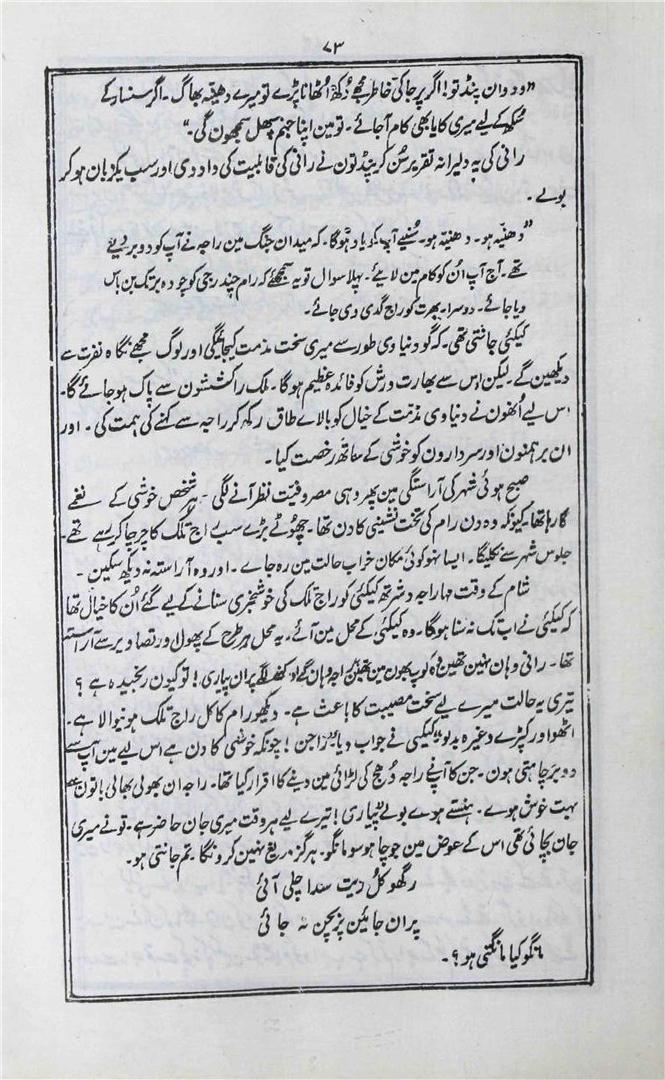 ۷۳
"ودوان پنڈتو! اگر پرجا کی خاطر مجھے دُکھ اُٹھانا پڑے تو میرے دھنیہ بھاگ۔ اگر سنسار کے
سُکھ کے لیے میری کایا بھی کام آجائے۔ تو مین اپنا جنم سپھل سمجھون گی۔"
رانی کی یہ دلیرانہ تقریر سُن کر پنڈتون نے رانی کی قابلیت کی داد دی اور سب یکزبان ہو کر
بولے۔
"دھنیہ ہو۔ دھنیہ ہو۔ سُنیے آپ کو یاد ہوگا۔ کہ میدان جنگ مین راجہ نے آپ کو دو بر دیئے
تھے۔ آج آپ اُن کو کام مین لایئے۔ پہلا سوال تو یہ سمجھئے کہ رام چندر جی کو چودہ برس تک بن باس
دیا جائے۔ دوسرا۔ بھرت کو راج گدی دی جائے۔
کیکئی جانتی تھی۔ کہ گو دنیا وی طور سے میری سخت مذمت کیجائیگی اور لوگ مجھے نگاہ نفرت سے
دیکھین گے۔ لیکن اس سے بھارت ورش کو فائدہ عظیم ہوگا۔ ملک راکششون سے پاک ہو جائے گا۔
اس لیے اُنھون نے دنیاوی مذمت کے خیال کو بالائے طاق رکھ کر راجہ سے کہنے کی ہمت کی۔ اور
ان برہمنون اور سردارون کو خوشی کے ساتھ رخصت کیا۔
صبح ہوئی شہر کی آراستگی مین پھر وہی مصروفیت نظر آنے لگی۔ ہر شخص خوشی کے نغمے
گا رہا تھا۔ کیونکہ وہ دن رام کی تخت نشینی کا دن تھا۔ چھوٹے بڑے سب راج تلک کا چرچا کر رہے تھے۔
جلوس شہر سے نکلیگا۔ ایسا نہو کوئی مکان خراب حالت مین رہ جاے۔ اور وہ آراستہ نہ دیکھ سکین۔
شام کے وقت مہاراجہ دشرتھ کیکئی کو راج تلک کی خوشخبری سنانے کے لیے گئے اُن کا خیال تھا
کہ کیکئی نے اب تک نہ سنا ہوگا۔ وہ کیکئی کے محل مین آئے۔ یہ محل ہر طرح کے پھول اور تصاویر سے آراستہ
تھا۔ رانی وہان نہین تھین وہ کوپ بھون مین تھین راجہ وہان گئے اور کہنے لگے پران پیاری! تو کیون رنجیدہ ہے؟
تیری یہ حالت میرے لیے سخت مصیبت کا باعث ہے۔ دیکھو رام کا کل راج تلک ہونیوالا ہے۔
اٹھو اور کپڑے وغیرہ بدلو" کیکئی نے جواب دیا "راجن! چونکہ خوشی کا دن ہے اس لیے مین آپ سے
دو بر چاہتی ہون۔ جن کا آپنے راجہ دُھج کی لڑائی مین دینے کا اقرار کیا تھا۔ راجہ ان بھولی بھالی باتون سے
بہت خوش ہوے۔ ہنستے ہوے بولے "پیاری! تیرے لیے ہر وقت میری جان حاضر ہے۔ تو نے میری
جان بچائی تھی اس کے عوض مین جو چاہو سو مانگو۔ ہرگز دریغ نہین کرونگا۔ تم جانتی ہو۔
رگھو کل ریت سدا چلی آئی
پران جائین پر بچن نہ جائی
مانگو کیا مانگتی ہو؟۔